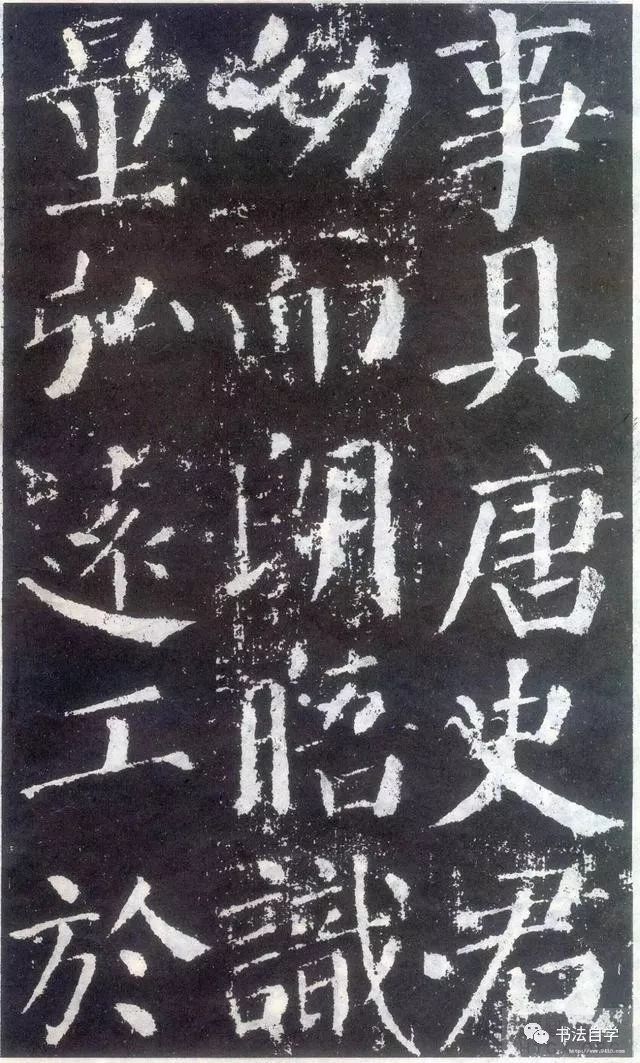 事具唐史君
幼而朗晤識
量弘遠工於
书法自学